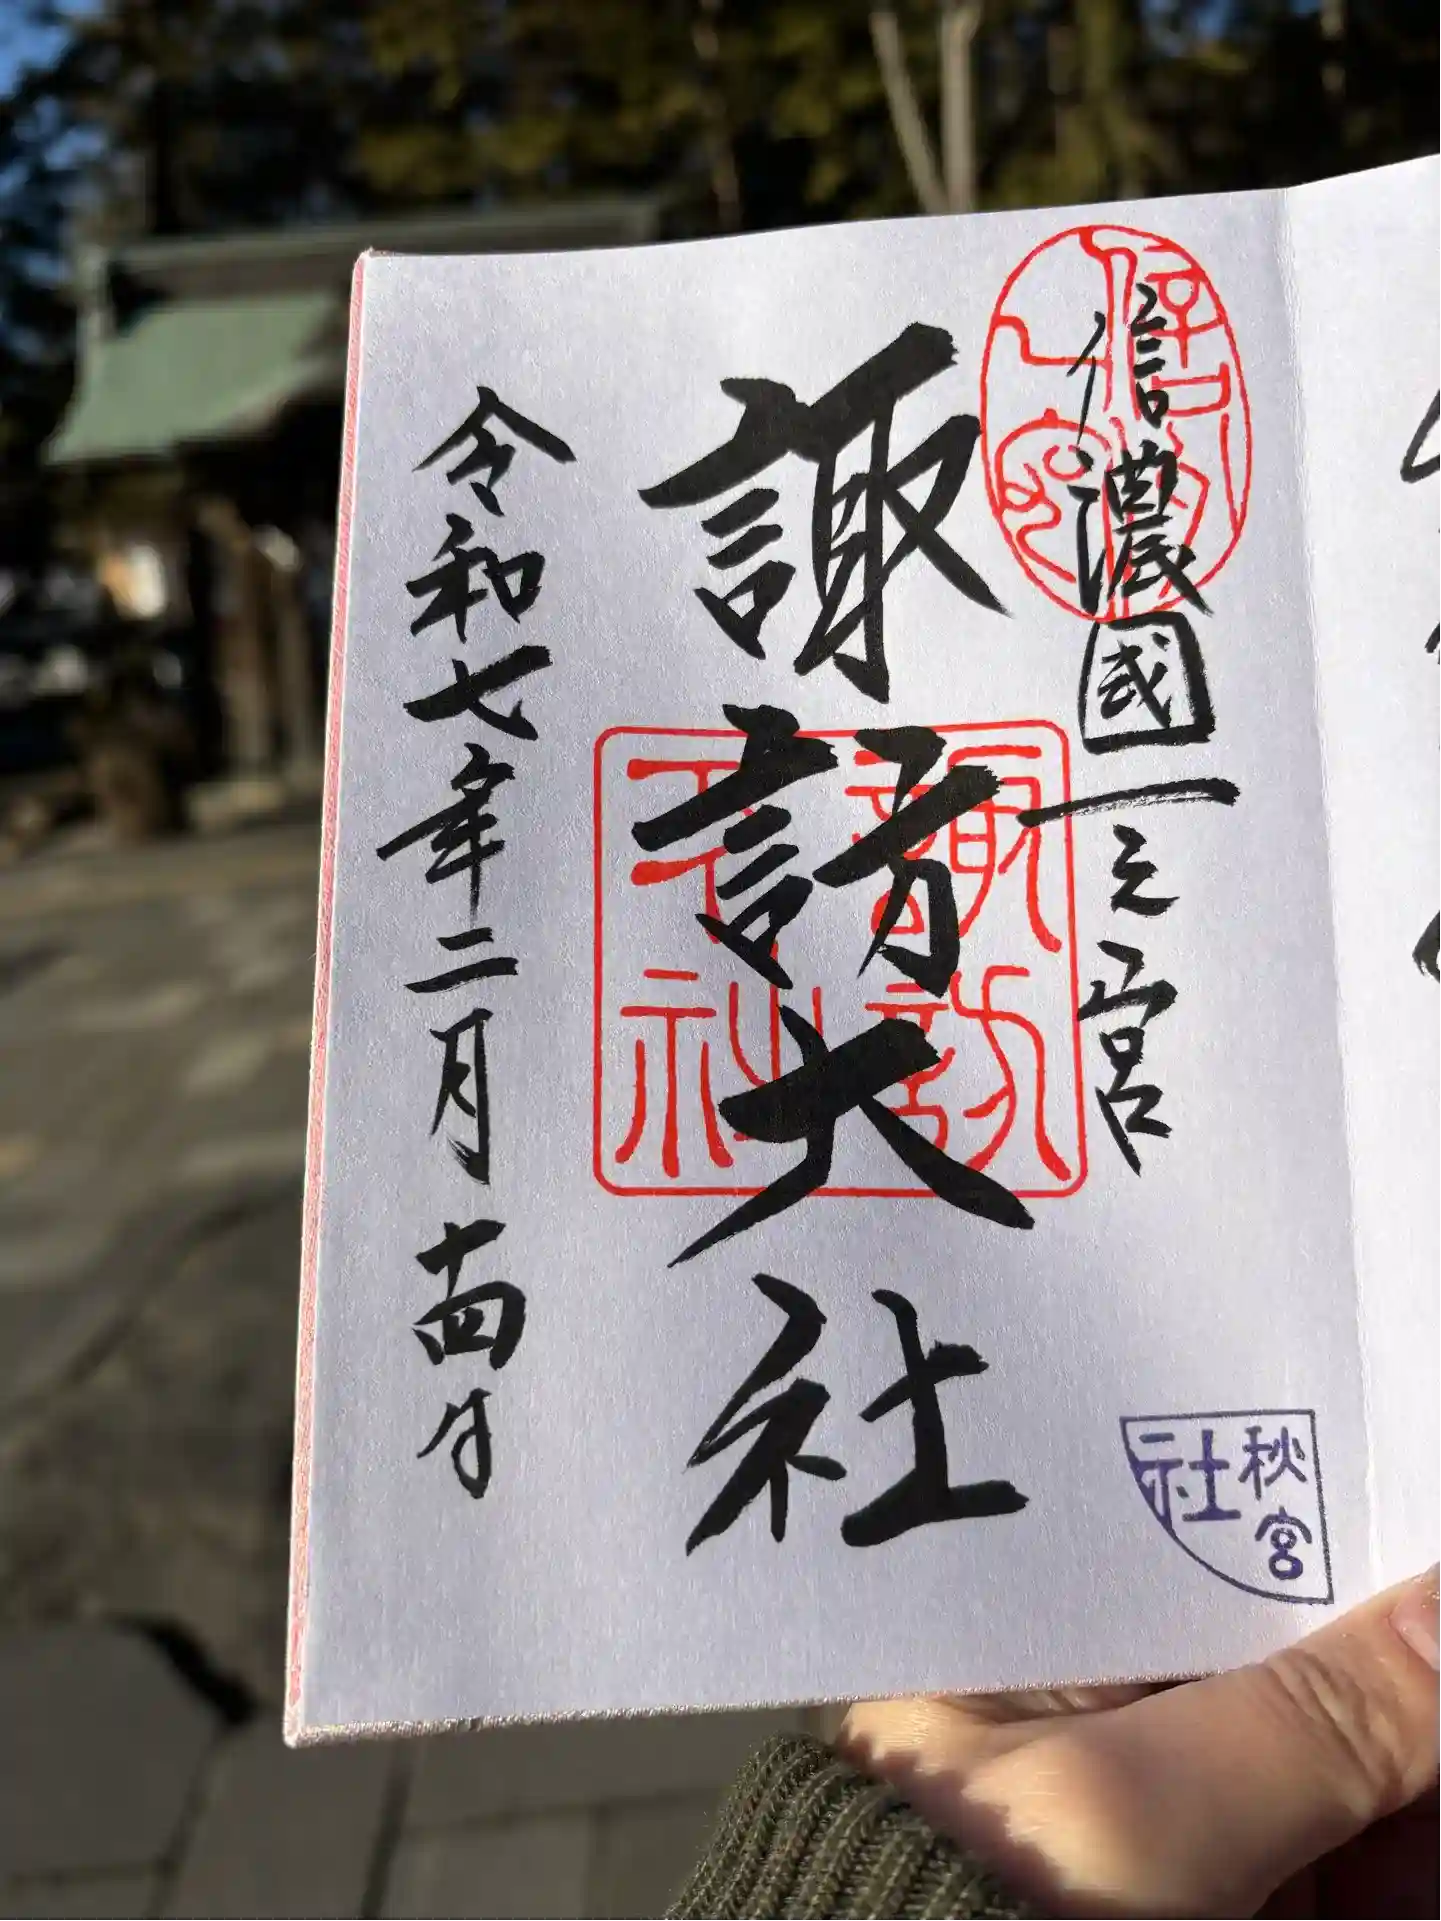 信濃國一之宮
諏訪大社
令和七年二月十四日
諏訪
大社
秋宮
社